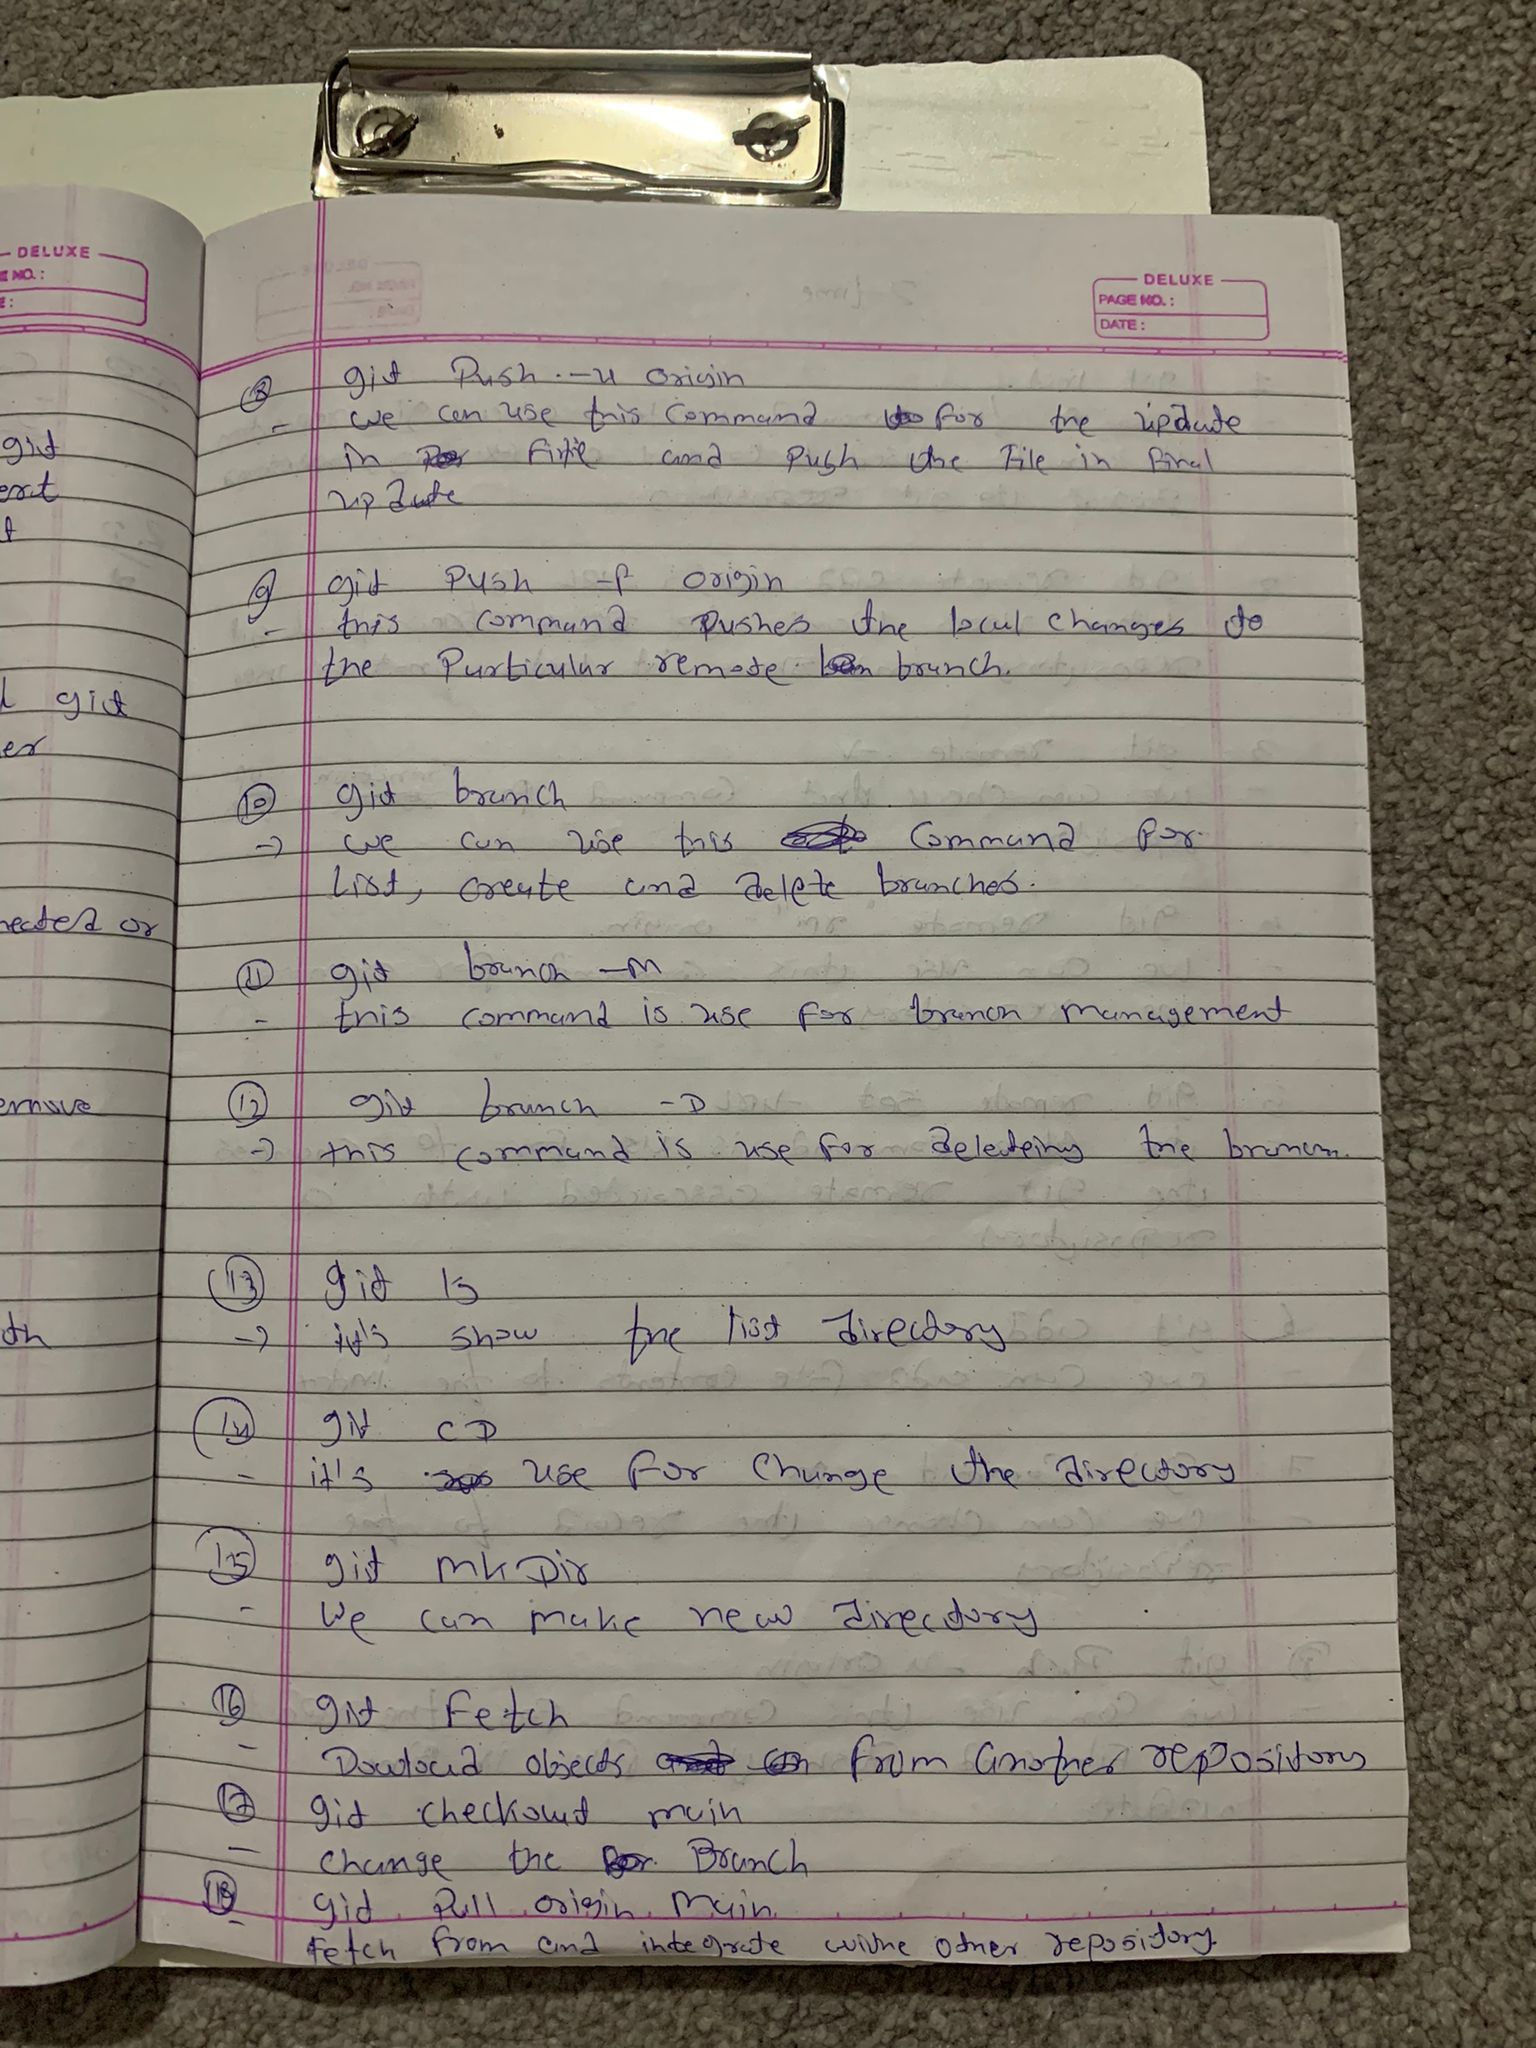 DELUXE
E NO.:
E:
git
erat
t
l git
er
nected or
emove
th
DELUXE
PAGE NO.:
DATE:
8 git Push -u origin
- we can use this command for the update
in file and push the file in final
update
9 git Push -f origin
- this command pushes the local changes to
the Particular remote branch.
10 git branch
→ we can use this command for
List, create and delete branches.
11 git branch -M
- this command is use for branch management
12 git branch -D
→ this command is use for deleteing the branch
13 git ls
→ it's show the list directory
14 git CD
- it's use for change the directory
15 git mkDir
- We can make new directory
16 git Fetch
- Dowload objects from another repository
17 git checkout main
- change the Branch
18 git Pull origin Main
- Fetch from and integrate withe other repository